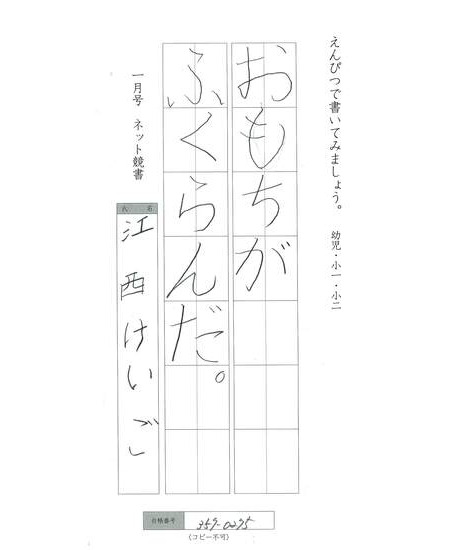 えんぴつで書いてみましょう。 幼児・小一・小二
おもちが
ふくらんだ。
一月号 ネット競書
氏名
江西けいご
合格番号 359-0295
(コピー不可)